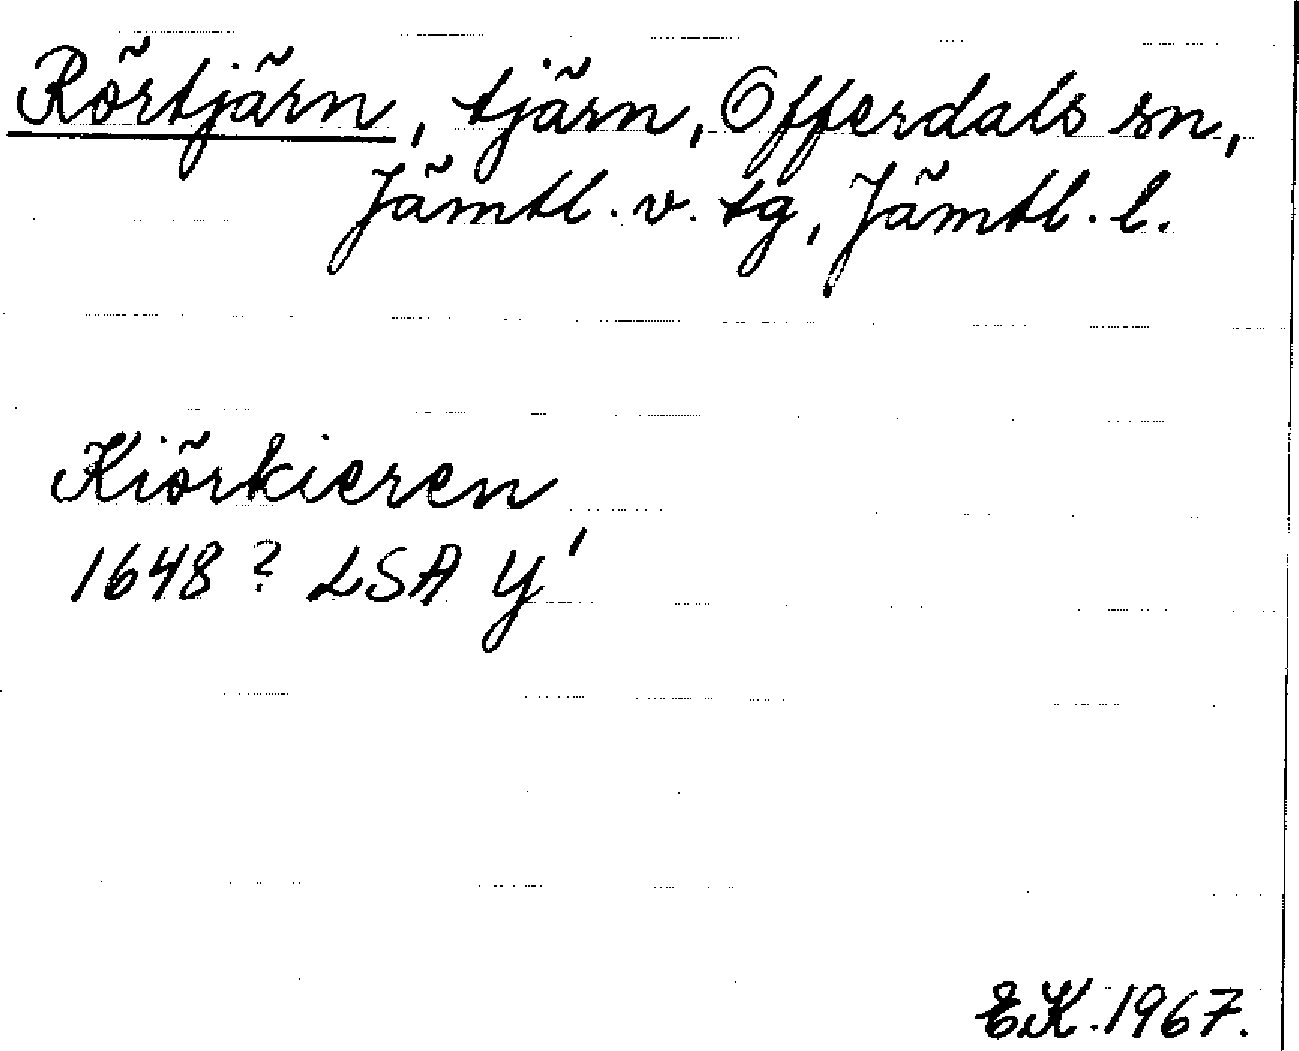 Rörtjärn, tjärn, Offerdals sn,
Jämtl. v. tg, Jämtl. l.
Kiörkieren,
1648? LSA Y
E.K. 1967.